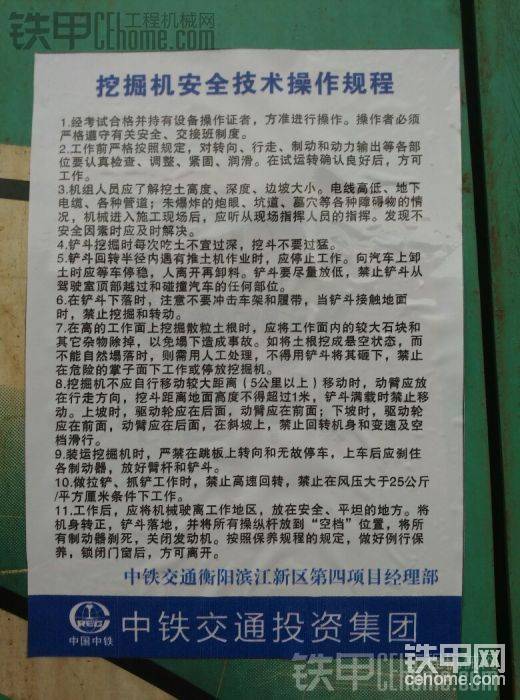 铁甲 工程机械网
CEhome.com
挖掘机安全技术操作规程
1.经考试合格并持有设备操作证者，方准进行操作。操作者必须
严格遵守有关安全、交接班制度。
2.工作前严格按照规定，对转向、行走、制动和动力输出等各部
位要认真检查、调整、紧固、润滑。在试运转确认良好后，方可
工作。
3.机组人员应了解挖土高度、深度、边坡大小。电线高低、地下
电缆、各种管道；未爆炸的炮眼、坑道、墓穴等各种障碍物的情
况，机械进入施工现场后，应听从现场指挥人员的指挥。发现不
安全因素时应及时解决。
4.铲斗挖掘时每次吃土不宜过深，挖斗不要过猛。
5.铲斗回转半径内遇有推土机作业时，应停止工作。向汽车上卸
土时应等车停稳，人离开再卸料。铲斗要尽量放低，禁止铲斗从
驾驶室顶部越过和碰撞汽车的任何部位。
6.在铲斗下落时，注意不要冲击车架和履带，当铲斗接触地面
时，禁止挖掘和转动。
7.在高的工作面上挖掘散粒土根时，应将工作面内的较大石块和
其它杂物除掉，以免塌下造成事故。如将土根挖成悬空状态，而
不能自然塌落时，则需用人工处理，不得用铲斗将其砸下，禁止
在危险的掌子面下工作或停放挖掘机。
8.挖掘机不应自行移动较大距离（5公里以上）移动时，动臂应放
在行走方向，挖斗距离地面高度不得超过1米，铲斗满载时禁止移
动。上坡时，驱动轮应在后面，动臂应在前面；下坡时，驱动轮
应在前面，动臂应在后面，在斜坡上，禁止回转机身和变速及空
档滑行。
9.装运挖掘机时，严禁在跳板上转向和无故停车，上车后应刹住
各制动器，放好臂杆和铲斗。
10.做拉铲、抓铲工作时，禁止高速回转，禁止在风压大于25公斤
/平方厘米条件下工作。
11.工作后，应将机械驶离工作地区，放在安全、平坦的地方。将
机身转正，铲斗落地，并将所有操纵杆放到“空档”位置，将所
有制动器刹死，关闭发动机。按照保养规程的规定，做好例行保
养，锁闭门窗后，方可离开。
中铁交通衡阳滨江新区第四项目经理部
CREC
中国中铁
中铁交通投资集团
铁甲网
cehome.com
铁甲 工程机械网
CEhome.com